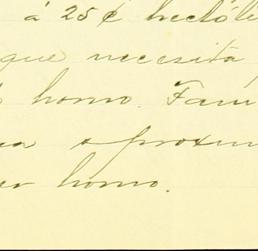 á 25 ¢ hectóli
que necesita
homo. Fam
a aproxim
homo.